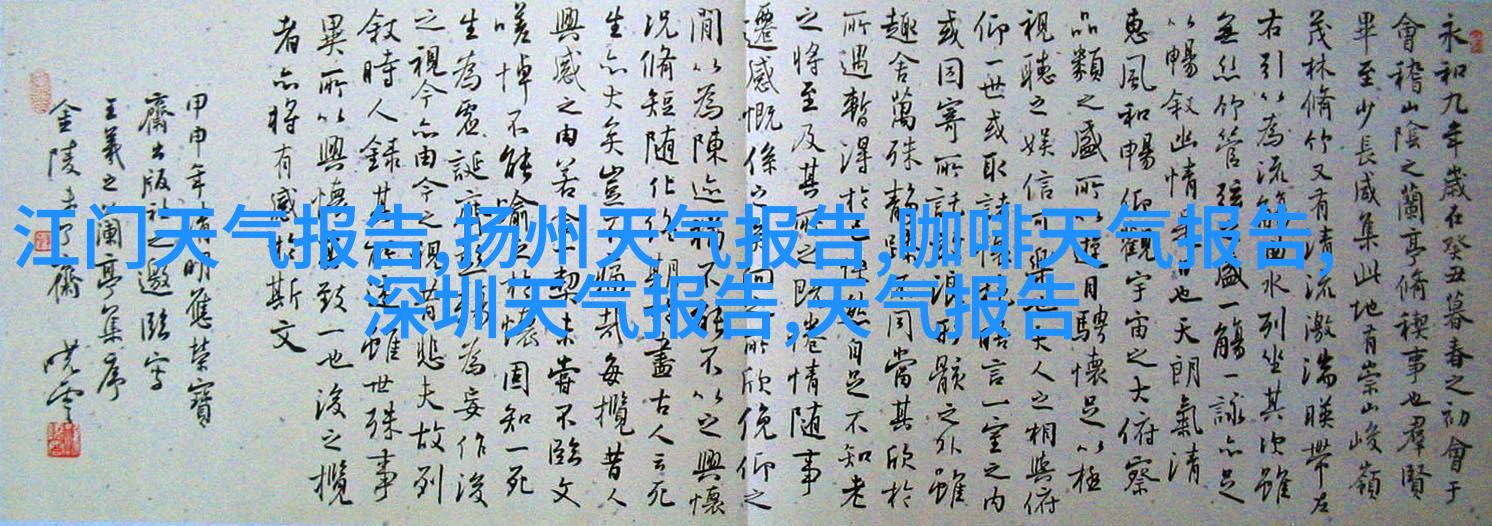 永和九年歲在癸丑暮春之初會于
會稽山陰之蘭亭脩稧事也羣賢
畢至少長咸集此地有崇山峻嶺
茂林脩竹又有清流激湍暎帶左
右引以為流觴曲水列坐其次雖
無絲竹管弦之盛一觴一詠亦足
以暢叙幽情是日也天朗氣清
惠風和暢仰觀宇宙之大俯察
品類之盛所以遊目騁懷足以極
視聽之娛信可樂也夫人之相與俯
仰一世或取諸懷抱悟言一室之內
或因寄所託放浪形骸之外雖
趣舍萬殊靜躁不同當其欣於
所遇暫得於己快然自足不知老
之將至及其所之既惓情隨事
遷感慨係之矣向之所欣俛仰之
間以為陳迹猶不能不以之興懷
況脩短隨化終期於盡古人云死
生亦大矣豈不痛哉每攬昔人
興感之由若合一契未嘗不臨文
嗟悼不能喻之於懷固知一死
生為虛誕齊彭殤為妄作後
之視今亦由今之視昔悲夫故列
叙時人錄其所述雖世殊事
異所以興懷其致一也後之攬
者亦將有感於斯文
甲申年清明應榮寶
齋出版社之邀臨寫
王羲之蘭亭集序
金陵
江门天气报告,扬州天气报告,咖啡天气报告,
深圳天气报告,天气报告